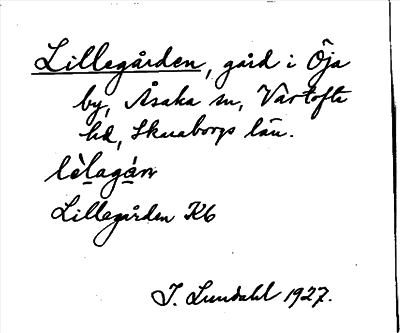 Lillegården, gård i Öja
by, Åsaka sn, Vartofta
hd, Skaraborgs län.
lèlagán
Lillegården K6
I. Lundahl 1927.